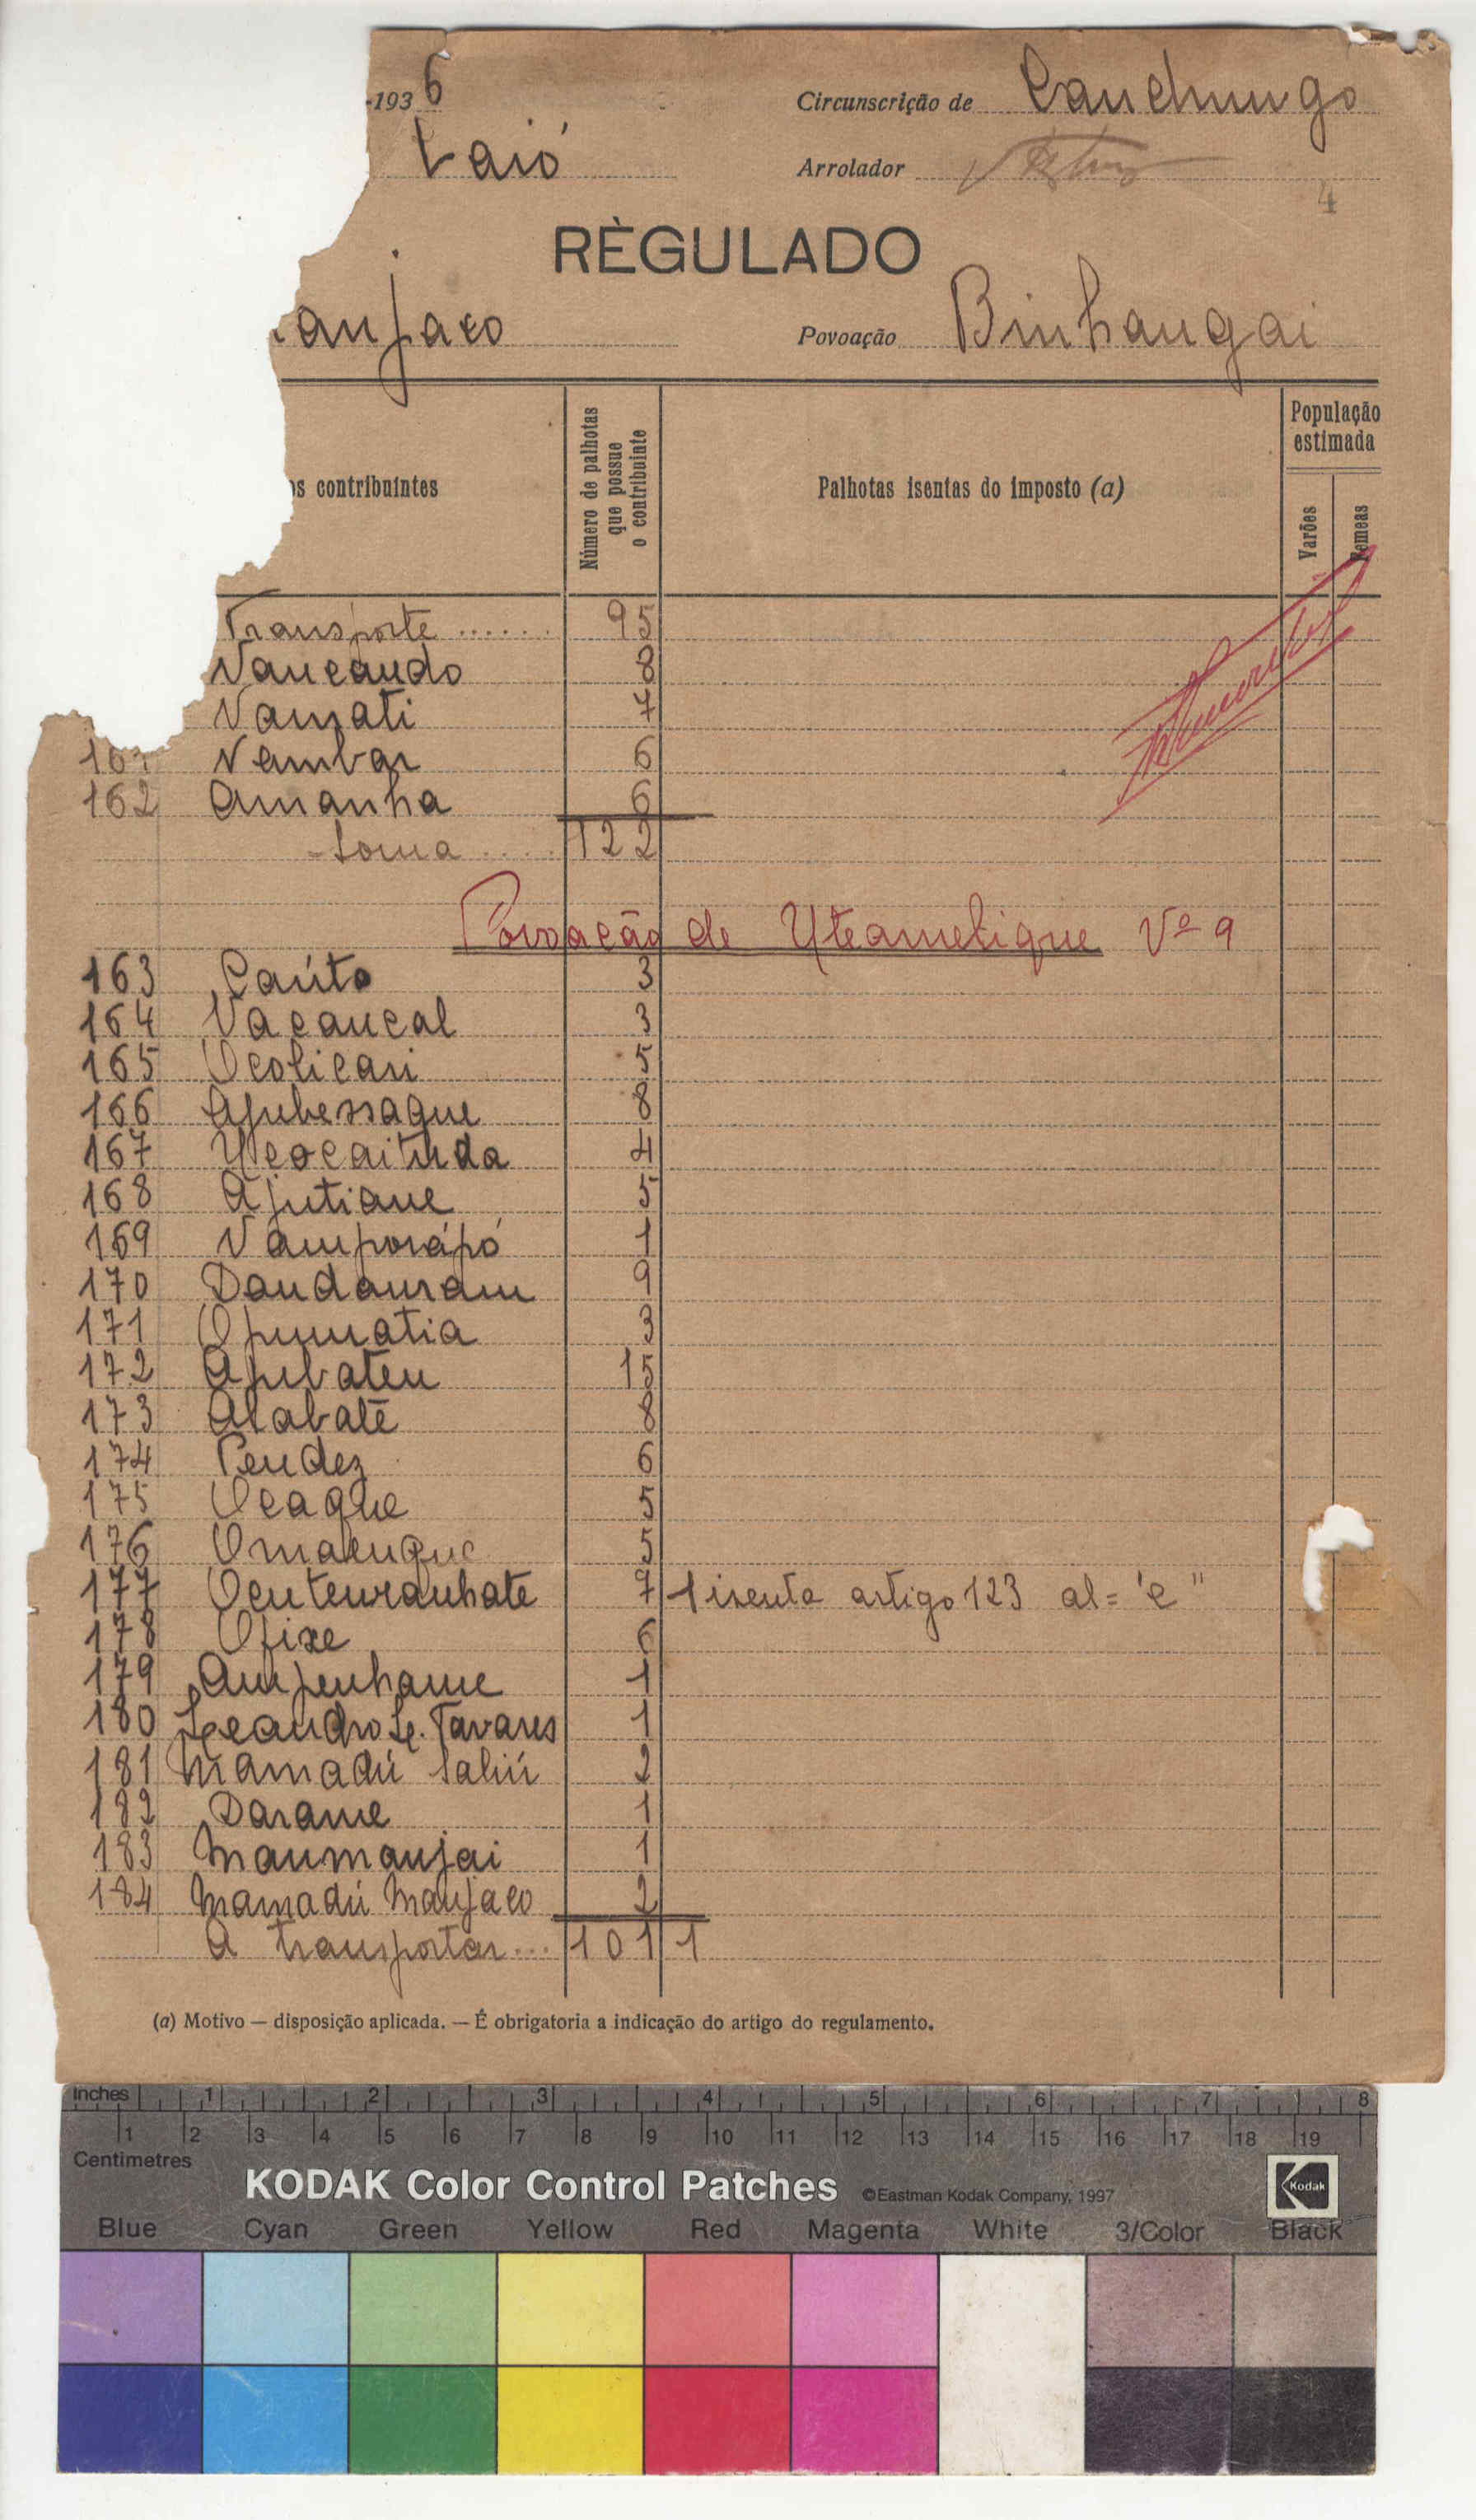 -1936 Circunscrição de Canchungo
Caió Arrolador
4
RÈGULADO
anjaco Povoação Binhangai
os contribuintes Número de palhotas que possue o contribuinte Palhotas isentas do imposto (a) População estimada Varões Femeas
Transporte ...... 95
Vancando 8
Vamati 7
161 Nambar 6
162 Amanha 6
Soma .... 122
Povoação de Uteamelique Vº 9
163 Caúto 3
164 Vacancal 3
165 Ucolicari 5
166 Apubessaque 8
167 Ucocaituda 4
168 Ajutiane 5
169 Vamporápó 1
170 Dandauram 9
171 Opumatia 3
172 Apubateu 15
173 Alabaté 8
174 Pendez 6
175 Ucaque 5
176 Umalenque 5
177 Ucuteuranhate 7 1 isenta artigo 123 al= "e"
178 Ofixe 6
179 Ampenhame 1
180 Leandro Tavares 1
181 Mamadú Saliú 2
182 Darame 1
183 Maumanjai 1
184 Mamadú Manjaco 2
A transportar... 101 1
(a) Motivo — disposição aplicada. — É obrigatoria a indicação do artigo do regulamento.
Inches 1 2 3 4 5 6 7 8
Centimetres 1 2 3 4 5 6 7 8 9 10 11 12 13 14 15 16 17 18 19
KODAK Color Control Patches ©Eastman Kodak Company, 1997 Kodak
Blue Cyan Green Yellow Red Magenta White 3/Color Black